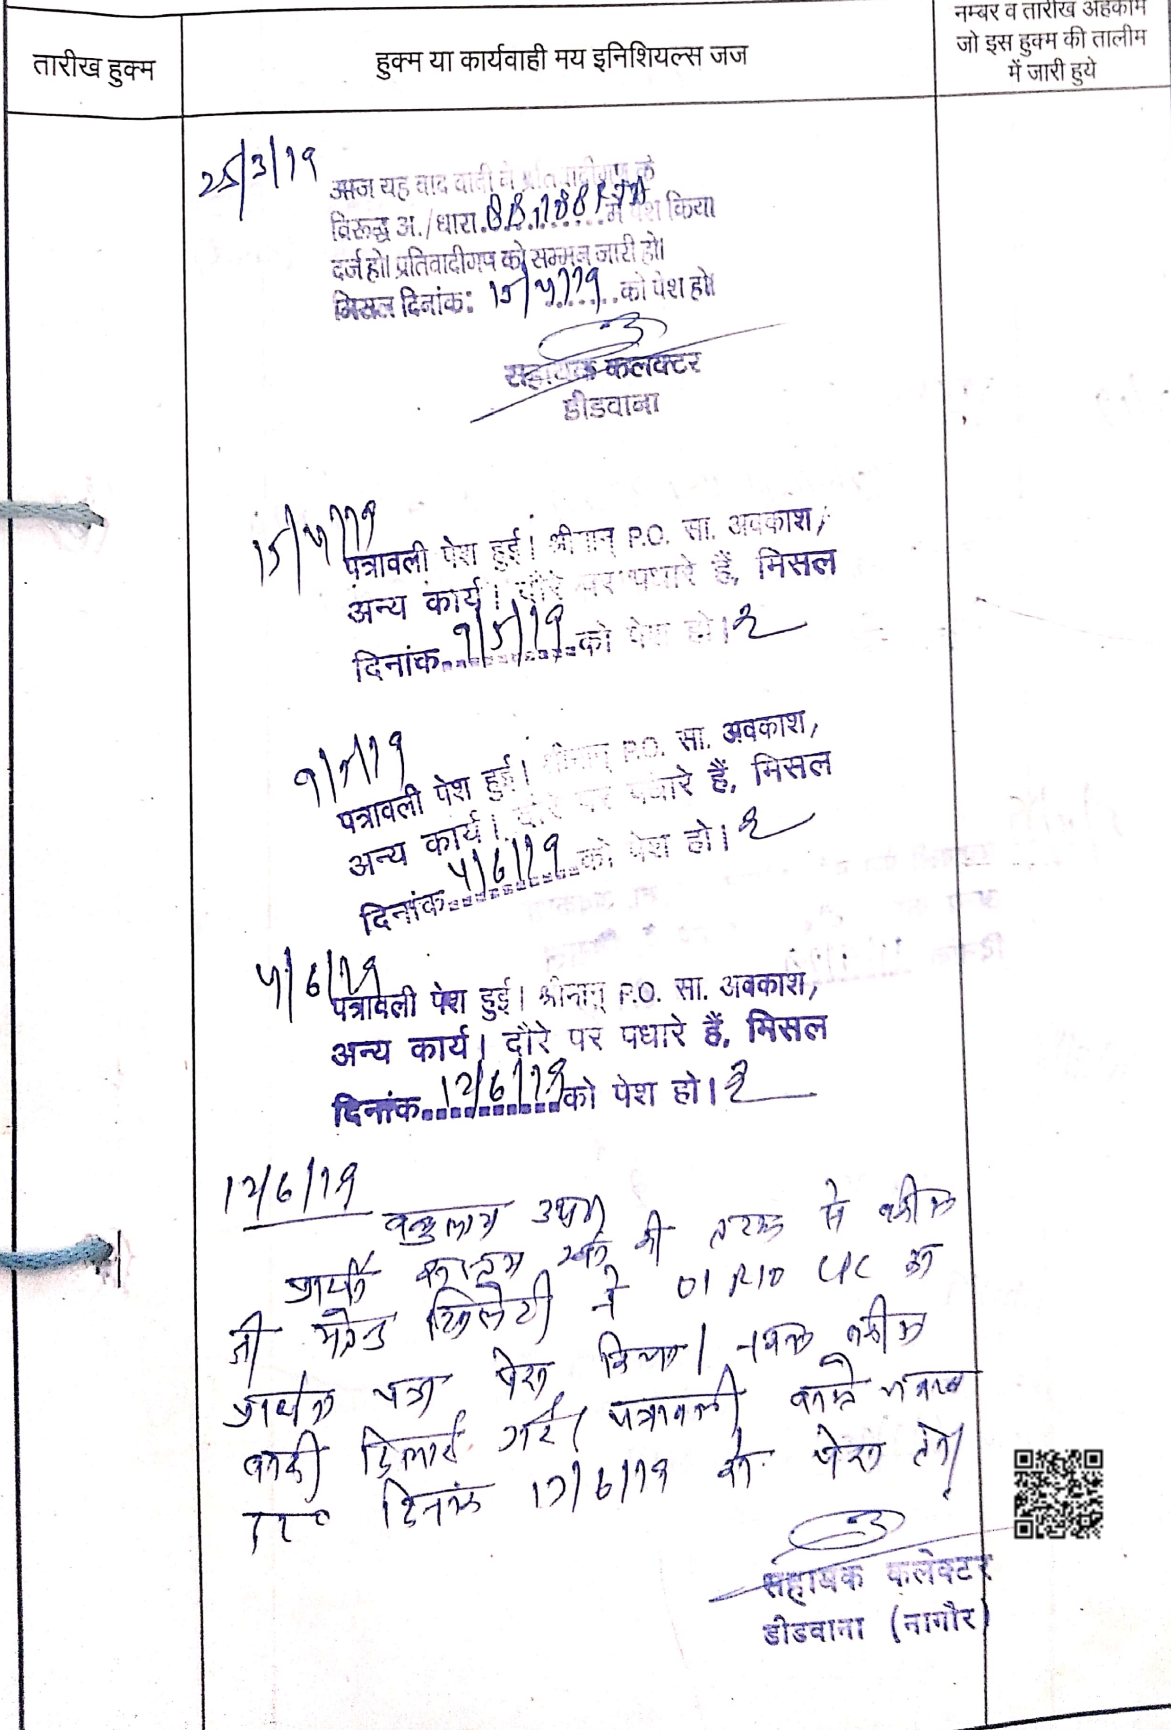 नम्बर व तारीख अहकाम
जो इस हुक्म की तालीम
में जारी हुये
तारीख हुक्म
हुक्म या कार्यवाही मय इनिशियल्स जज
25/3/19
आज यह वाद वादी ने प्रतिवादीगण के
विरूद्ध अ./धारा. 88,188 RTA में पेश किया
दर्ज हो। प्रतिवादीगण को सम्मन जारी हो।
मिसल दिनांक: 15/4/19 को पेश हो।
सहायक कलक्टर
डीडवाना
15/4/19
पत्रावली पेश हुई। श्रीमान् P.O. सा. अवकाश,
अन्य कार्य। दौरे पर पधारे हैं, मिसल
दिनांक 9/5/19 को पेश हो।
9/5/19
पत्रावली पेश हुई। श्रीमान् P.O. सा. अवकाश,
अन्य कार्य। दौरे पर पधारे हैं, मिसल
दिनांक 4/6/19 को पेश हो।
4/6/19
पत्रावली पेश हुई। श्रीमान् P.O. सा. अवकाश,
अन्य कार्य। दौरे पर पधारे हैं, मिसल
दिनांक 12/6/19 को पेश हो।
12/6/19
की तरफ से वकील
जी ने 01 R10 का
पत्र पेश किया। नकल वकील
वादी दिलाई गई। पत्रावली वास्ते जवाब
दिनांक 17/6/19 को पेश हो।
सहायक कलेक्टर
डीडवाना (नागौर)